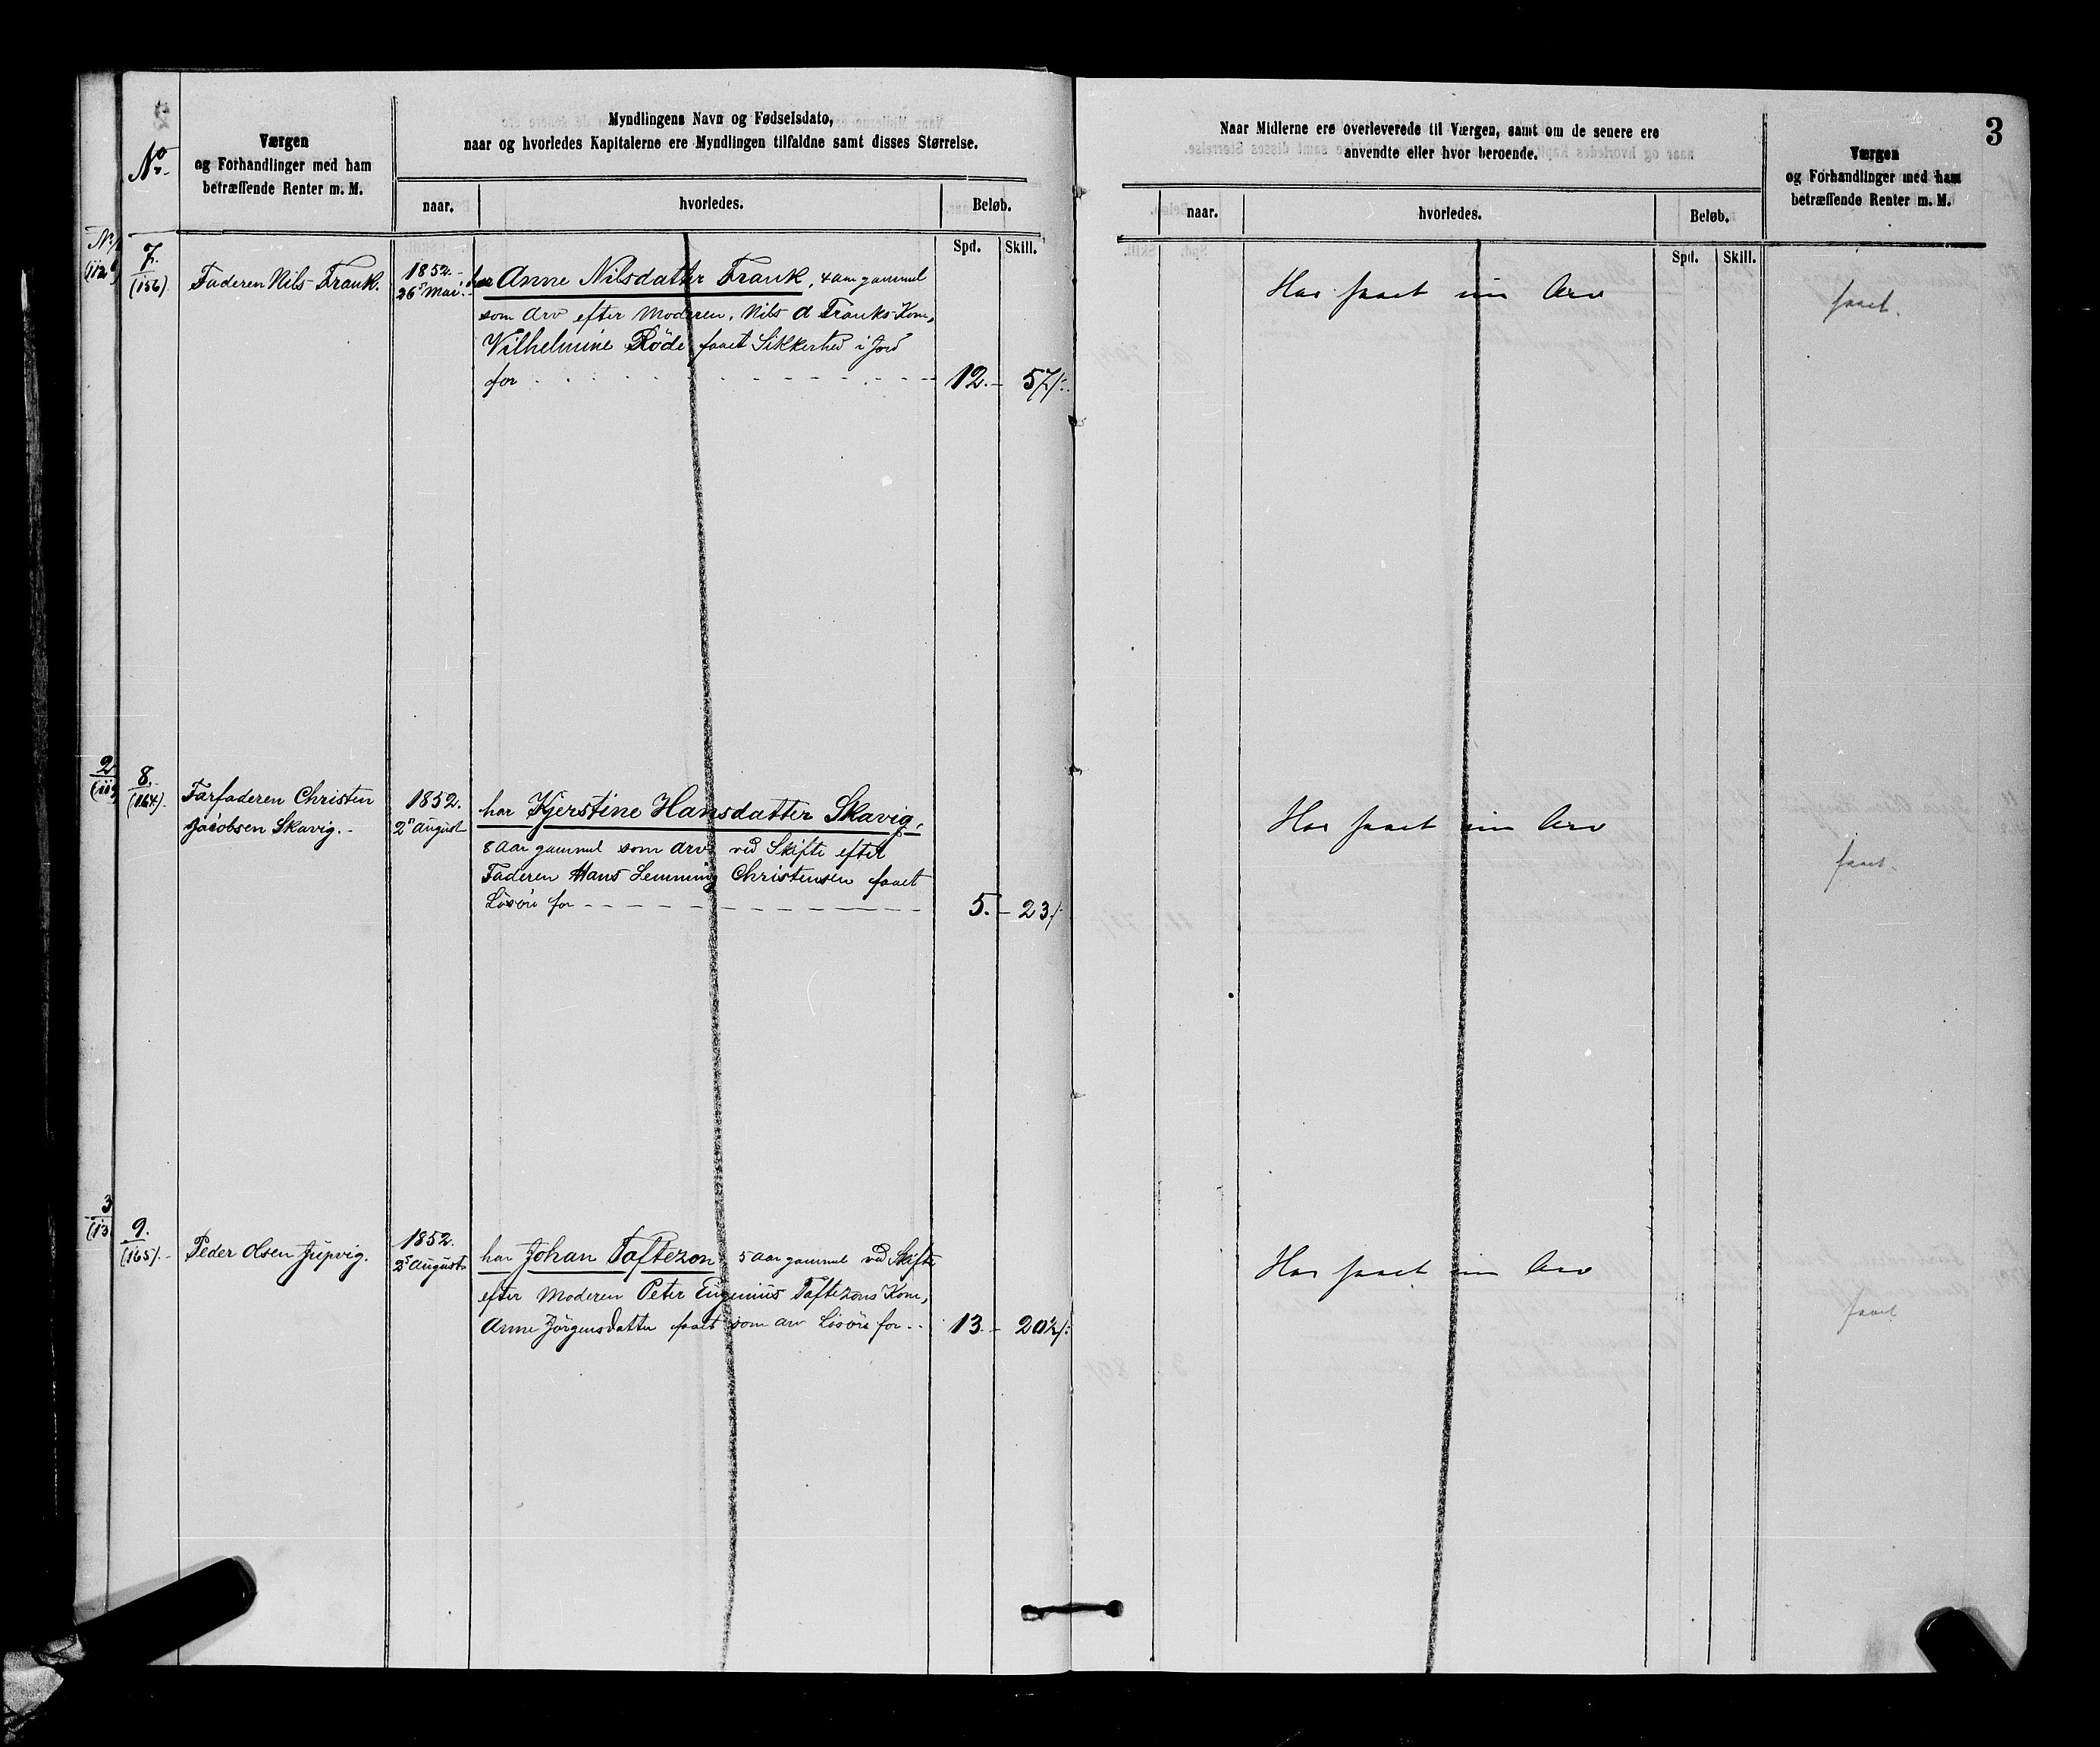 3
No.
Værgen
og Forhandlinger med ham
betræffende Renter m. M.
Myndlingens Navn og Fødselsdato,
naar og hvorledes Kapitalerne ere Myndlingen tilfaldne samt disses Størrelse.
naar.
hvorledes.
Beløb.
Spd.
Skill.
7.
(156).
Faderen Nils Frank.
1852.
26 Mai.
har Anne Nilsdatter Frank, 4 aar gammel
som Arv efter Moderen, Nils d Franks Kone,
Vilhelmine Röde faaet Sikkerhed i Jord
for
12.
57/:
8.
(164).
Farfaderen Christen
Jacobsen Skavig.
1852.
2 August
har Kjerstine Hansdatter Skavig,
8 Aar gammel som Arv ved Skifte efter
Faderen Hans Lemming Christensen faaet
Lösöre for
5.
23/:
9.
(165).
Peder Olsen Jupvig.
1852.
2 August
har Johan Taftezon 5 Aar gammel ved Skifte
efter Moderen Peter Eugenius Taftezons Kone,
Anne Jörgensdatter faaet som Arv Lösöre for
13.
20½/:
Naar Midlerne ere overleverede til Værgen, samt om de senere ere
anvendte eller hvor beroende.
Værgen
og Forhandlinger med ham
betræffende Renter m. M.
naar.
hvorledes.
Beløb.
Spd.
Skill.
Har faaet sin Arv
faaet.
Har faaet sin Arv
faaet.
Har faaet sin Arv
faaet